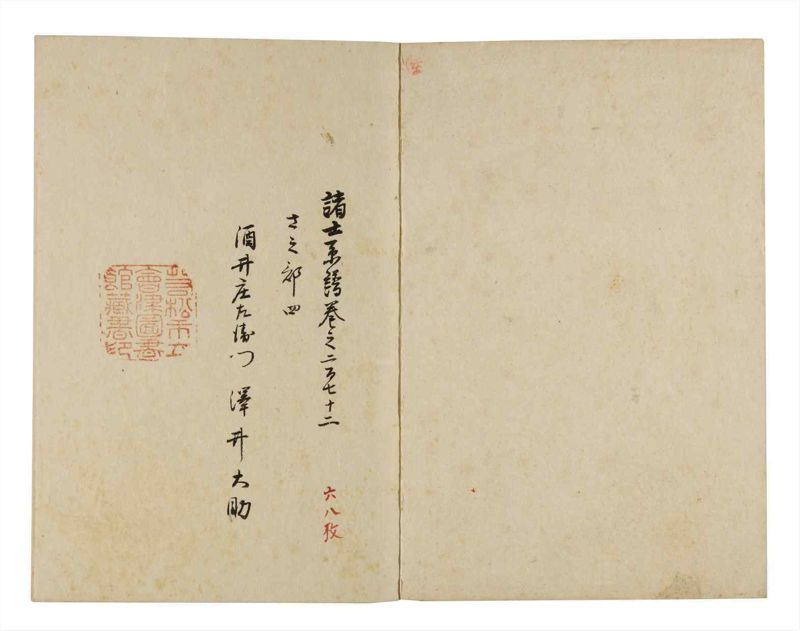 諸士系譜巻之二百七十二
さ之部四
酒井庄左衛門 澤井大助
六八枚
若松市立
會津圖書
館藏書印